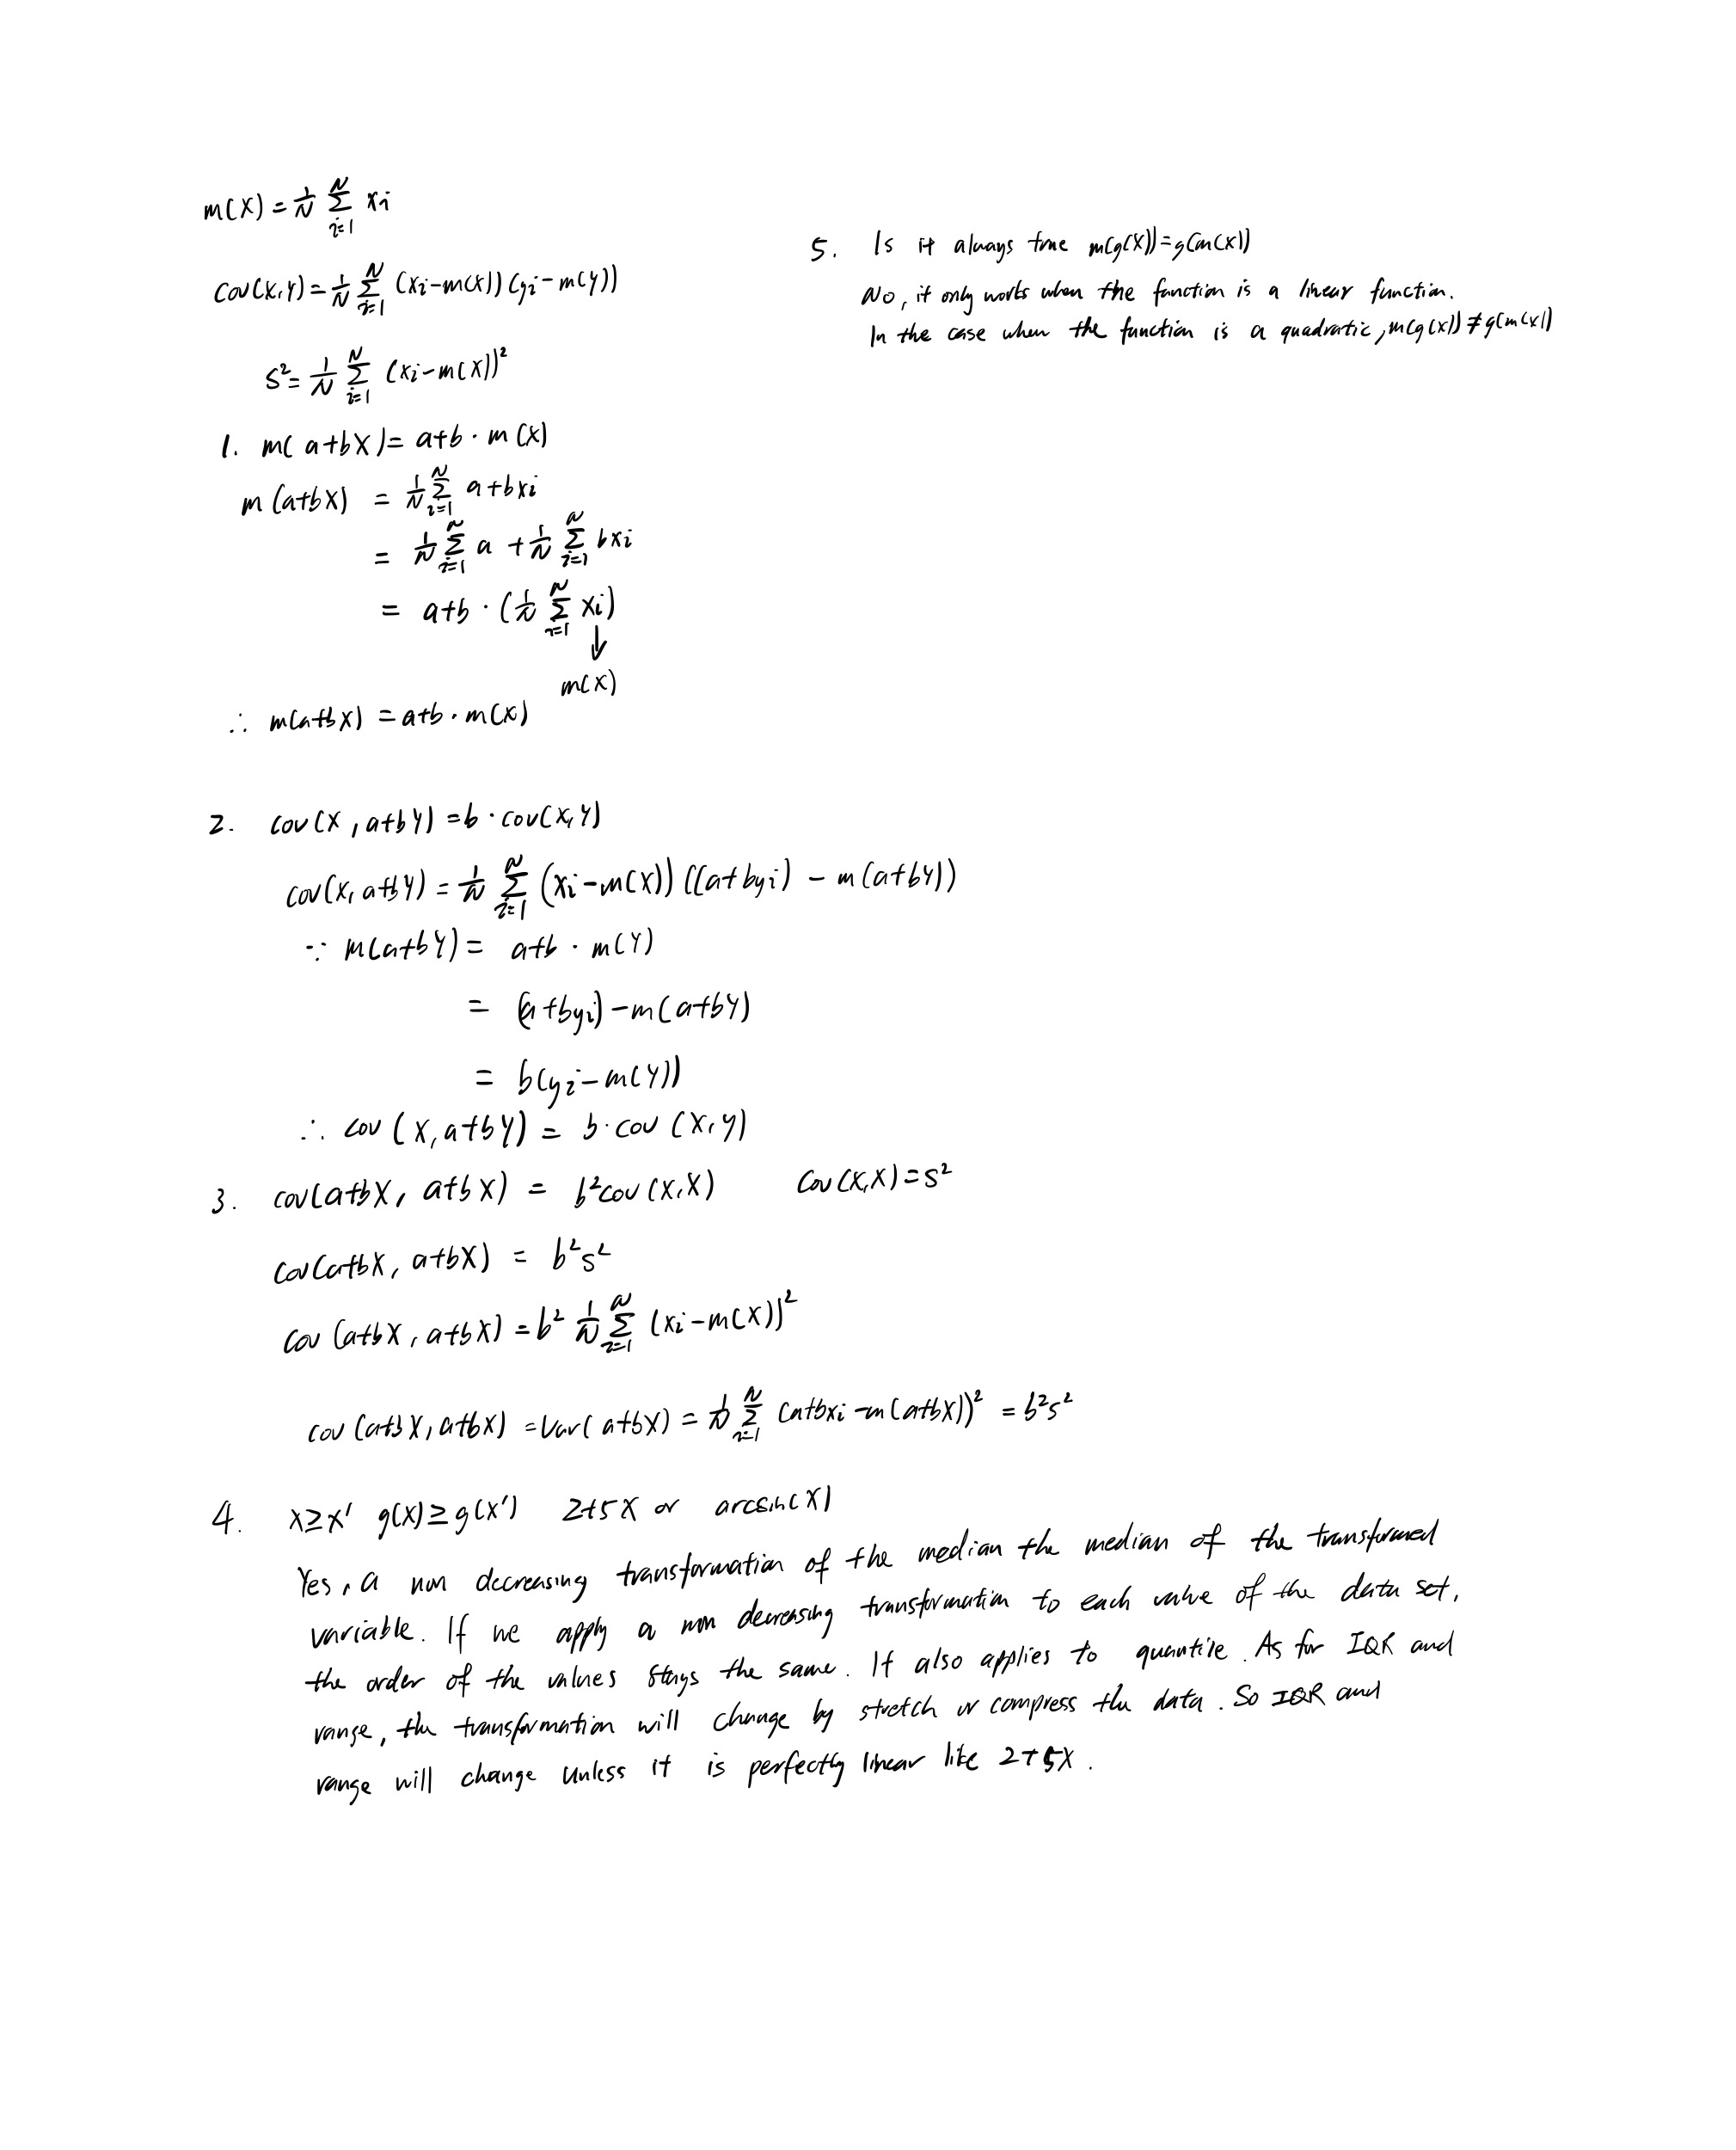 m(X) = 1/N Σ_{i=1}^{N} xi
cov(X,Y) = 1/N Σ_{i=1}^{N} (xi-m(X)) (yi-m(Y))
S² = 1/N Σ_{i=1}^{N} (xi-m(X))²
1. m(a+bX) = a+b · m(X)
m(a+bX) = 1/N Σ_{i=1}^{N} a+bxi
= 1/N Σ_{i=1}^{N} a + 1/N Σ_{i=1}^{N} bxi
= a+b · (1/N Σ_{i=1}^{N} xi)
↓
m(X)
∴ m(a+bX) = a+b · m(X)
2. cov(X, a+bY) = b · cov(X,Y)
cov(X, a+bY) = 1/N Σ_{i=1}^{N} (xi-m(X)) ((a+byi) - m(a+bY))
∵ m(a+bY) = a+b · m(Y)
= (a+byi) - m(a+bY)
= b(yi-m(Y))
∴ cov(X, a+bY) = b · cov(X,Y)
3. cov(a+bX, a+bX) = b²cov(X,X) cov(X,X) = S²
cov(a+bX, a+bX) = b²s²
cov(a+bX, a+bX) = b² 1/N Σ_{i=1}^{N} (xi-m(X))²
cov(a+bX, a+bX) = Var(a+bX) = 1/N Σ_{i=1}^{N} (a+bxi-m(a+bX))² = b²s²
4. X≥X' g(X)≥g(X') 2+5X or arcsinh(X)
Yes, a non decreasing transformation of the median the median of the transformed
variable. If we apply a non decreasing transformation to each value of the data set,
the order of the values stays the same. It also applies to quantile. As for IQR and
range, the transformation will change by stretch or compress the data. So IQR and
range will change unless it is perfectly linear like 2+5X.
5. Is it always true m(g(X)) = g(m(X))
No, it only works when the function is a linear function.
In the case when the function is a quadratic, m(g(X)) ≠ g(m(X))